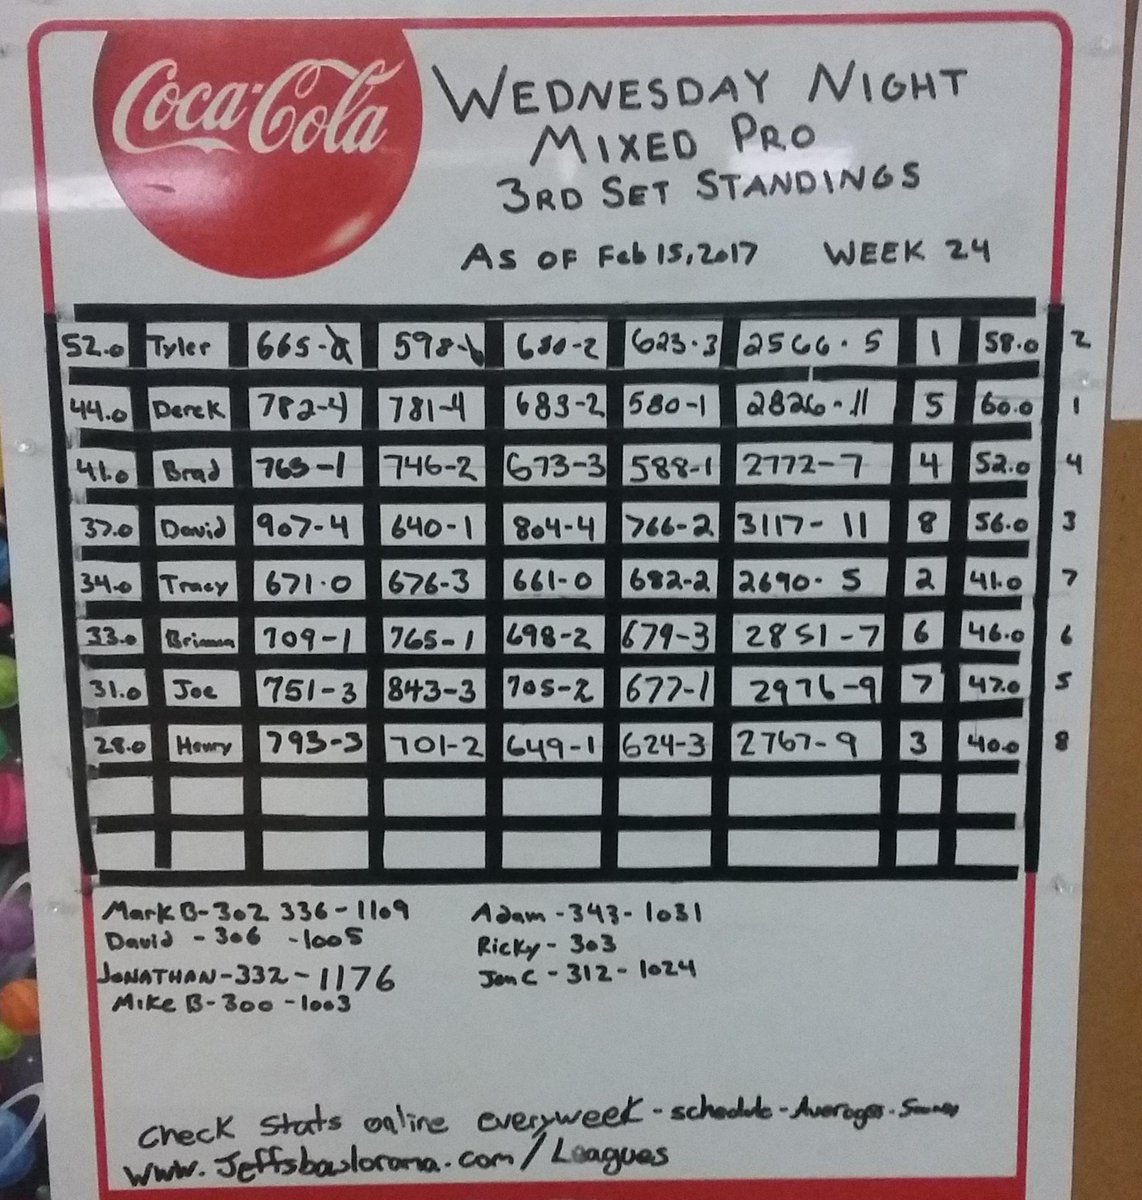 Coca-Cola
WEDNESDAY NIGHT
MIXED PRO
3RD SET STANDINGS
AS OF Feb 15, 2017 WEEK 24
52.0 Tyler 665 598 680-2 623-3 2566-5 1 58.0 2
44.0 Derek 782-4 781-4 683-2 580-1 2826-11 5 60.0 1
41.0 Brad 765-1 746-2 673-3 588-1 2772-7 4 52.0 4
37.0 David 907-4 640-1 804-4 766-2 3117-11 8 56.0 3
34.0 Tracy 671-0 676-3 661-0 682-2 2690-5 2 41.0 7
33.0 Brianna 709-1 765-1 698-2 679-3 2851-7 6 46.0 6
31.0 Joe 751-3 843-3 705-2 677-1 2976-9 7 47.0 5
28.0 Henry 793-3 701-2 649-1 624-3 2767-9 3 40.0 8
Mark B-302 336-1109
David - 306 -1005
JONATHAN-332-1176
Mike B-300-1003
Adam-343-1031
Ricky-303
Jon C-312-1024
Check stats online everyweek-schedule-Averages-
www.Jeffsbowlorama.com/Leagues